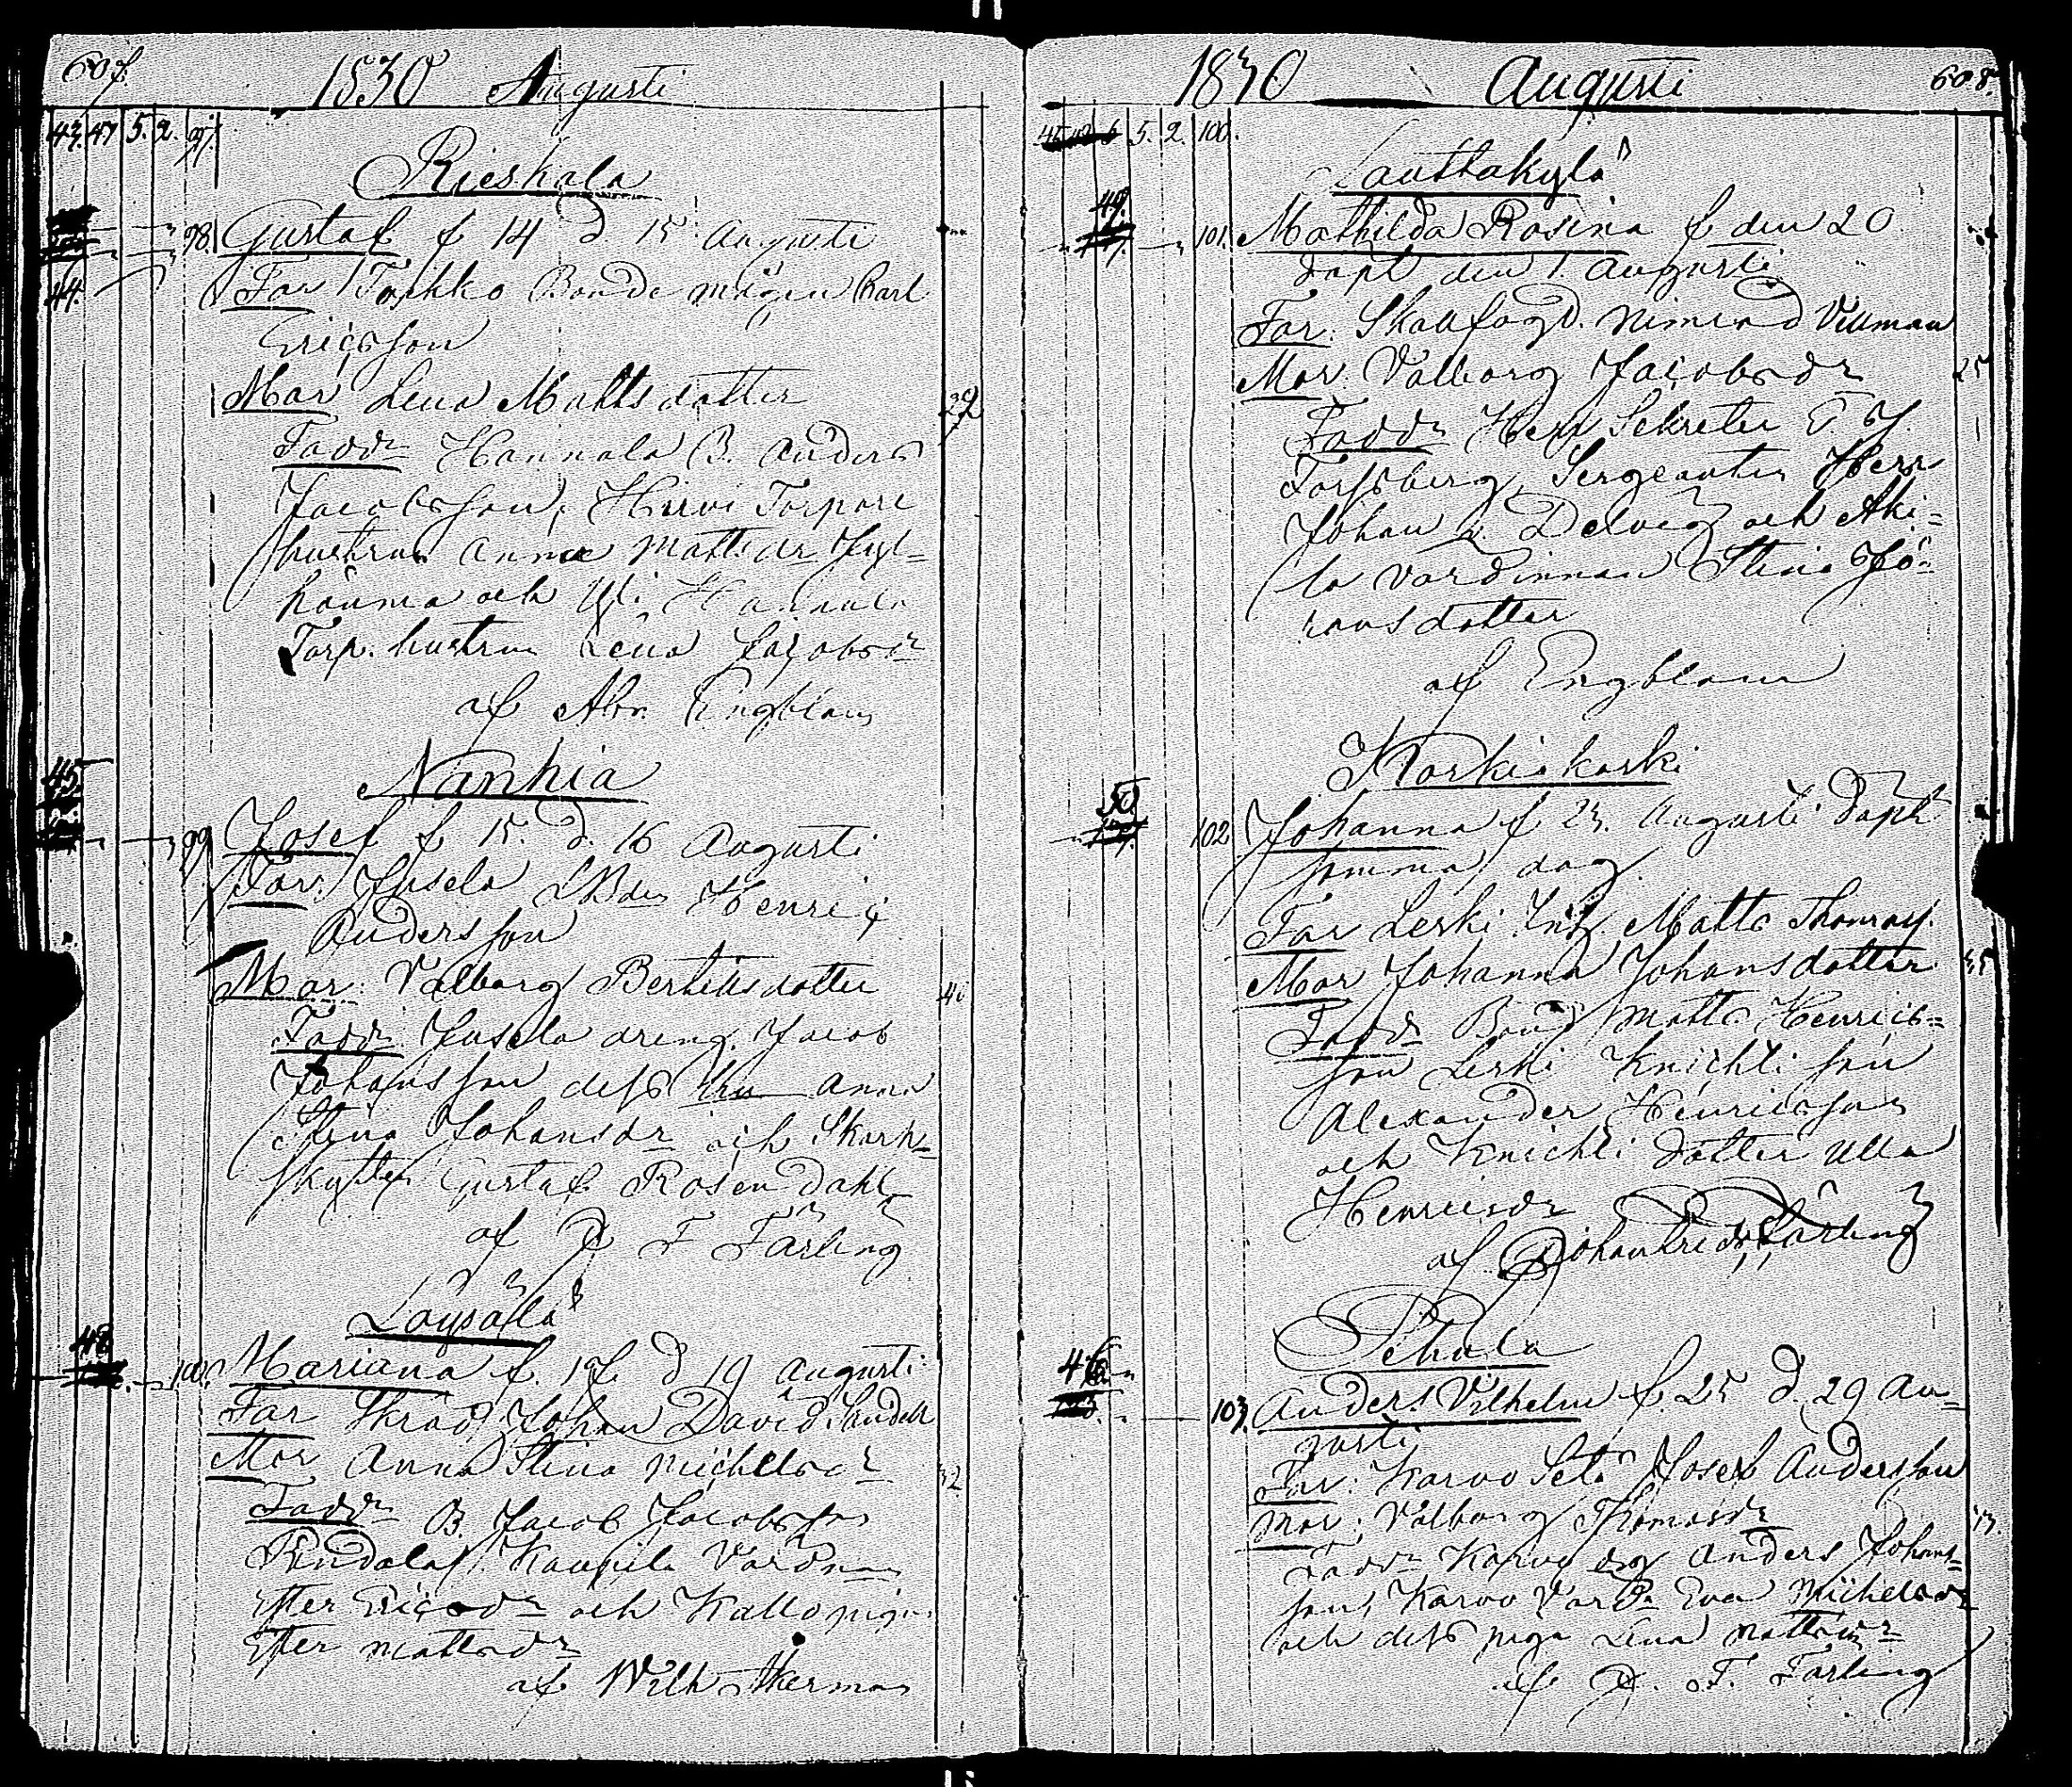 607.
1830 Augusti
43. 47 5. 2. 97.
Rieskala
98. Gustaf f 14 d. 15 Augusti
44. Far Torkko Bonde mågen Carl
Ericsson
Mor Lena Mattsdotter 32
Fadd Hannala B. Anders
Jacobsson, Hirvi Torpare
hustrun Anna Mattsdr
och Yli Hannala
Torp. hustrun Lena Jacobsdr
af Abr. Engblom
Nanhia
45
99 Josef f 15. d. 16 Augusti
Far: Jusela Henric
Andersson
Mor: Valborg Bertilsdotter 40
Fadd Jusela dreng Jacob
Johansson dess hu Anna
Stina Johansdr och Skarp-
skytten Gustaf Rosendahl
af J F Färling
Loysälä
48
100. Mariana f. 17. d 19 Augusti
Far Skrädd Johan David Sandell
Mor Anna Stina Michelsdr 32
Fadd B. Jacob Jacobsson
Kaupila Värdin
Ester Ericsdr och Kallo pigan
Ester Mattsdr
af Wilh Åkerman
1830 Augusti 608.
5. 2. 100.
Lauttakylä
49.
101. Mathilda Rosina f den 20
döpt den Augusti
Far: Skallfogd. Nimrod Villman
Mor Valborg Jacobsdr 25
Fadd Herr Sekreter
Forssberg, Sergeanten Herr
Johan och Aki-
la värdinnan Stina Jö-
ransdotter
af Engblom
Korkiakoski
50
102 Johanna f 23. Augusti döpt
samma dag
Far Leski Inh. Matts Thomass.
Mor Johanna Johansdotter 35
Fadd Bond Matts Henrics-
son Leski Knichti son
Alexander Henricsson
och Knichti dotter Ulla
Henricsdr
af Johan Fredr Färling
Pehula
46
103. Anders Vilhelm f. 25 d. 29 Au-
gusti
Far: Karvo Josef Andersson
Mor: Valborg Thomasdr
Fadd Karvo drg Anders Johans-
son, Karvo Vard Eva Michelsdr
och dess piga Lena Mattsdr
af J. F. Färling